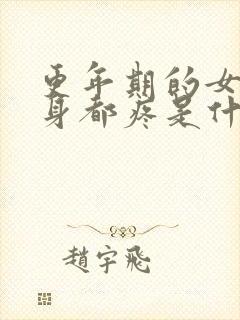 更年期的女
身都疼是什
趙宇飛